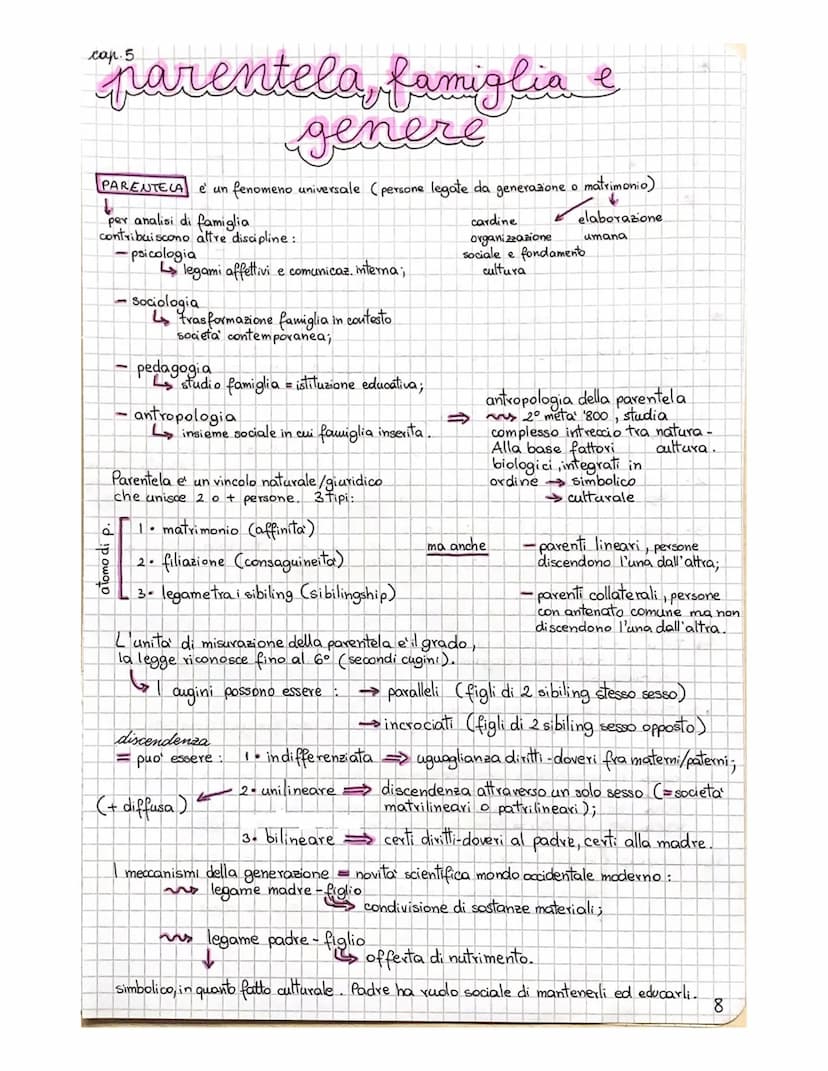 cap. 5
parentela, famiglia e
genere
PARENTELA e' un fenomeno universale (persone legate da generazione o matrimonio)
per analisi di famiglia
contribuiscono altre discipline:
cardine
organizzazione
sociale e fondamento
cultura
elaborazione
umana
- psicologia
↳ legami affettivi e comunicaz. interna;
- sociologia
↳ trasformazione famiglia in contesto
societa' contemporanea;
- pedagogia
↳ studio famiglia = istituzione educativa;
- antropologia ⇒
↳ insieme sociale in cui famiglia inserita.
antropologia della parentela
2° meta' '800, studia
complesso intreccio tra natura -
cultura.
Alla base fattori
biologici, integrati in
ordine → simbolico
→ culturale
Parentela e' un vincolo naturale/giuridico
che unisce 2 o + persone. 3 tipi:
atomo di p.
1• matrimonio (affinita')
2• filiazione (consaguineita')
3• legame tra i sibiling (sibilingship)
ma anche
- parenti lineari, persone
discendono l'una dall'altra;
- parenti collaterali, persone
con antenato comune ma non
discendono l'una dall'altra.
L'unita' di misurazione della parentela e' il grado,
la legge riconosce fino al 6° (secondi cugini).
↳ I cugini possono essere: → paralleli (figli di 2 sibiling stesso sesso)
→ incrociati (figli di 2 sibiling sesso opposto)
discendenza
= puo' essere: 1• indifferenziata ⇒ uguaglianza diritti-doveri fra materni/paterni;
(+ diffusa) ← 2• unilineare ⇒ discendenza attraverso un solo sesso (= societa'
matrilineari o patrilineari);
3• bilineare ⇒ certi diritti-doveri al padre, certi alla madre.
I meccanismi della generazione = novita' scientifica mondo occidentale moderno:
legame madre-figlio
↳ condivisione di sostanze materiali;
legame padre-figlio
↳ offerta di nutrimento.
simbolico, in quanto fatto culturale. Padre ha ruolo sociale di mantenerli ed educarli.
8